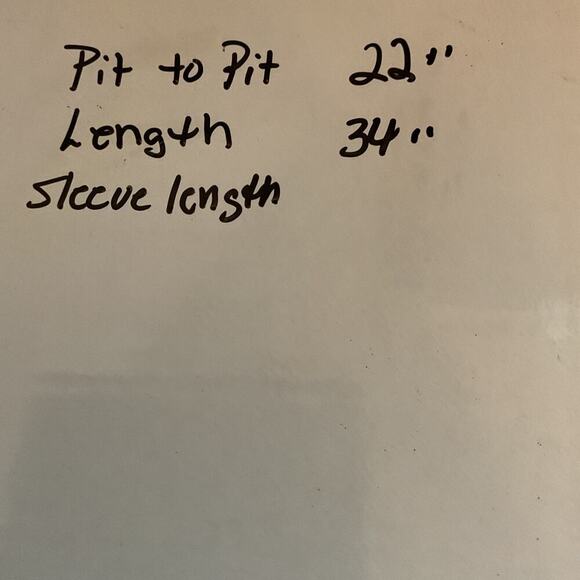 Pit to Pit 22"
Length 34"
Sleeve length